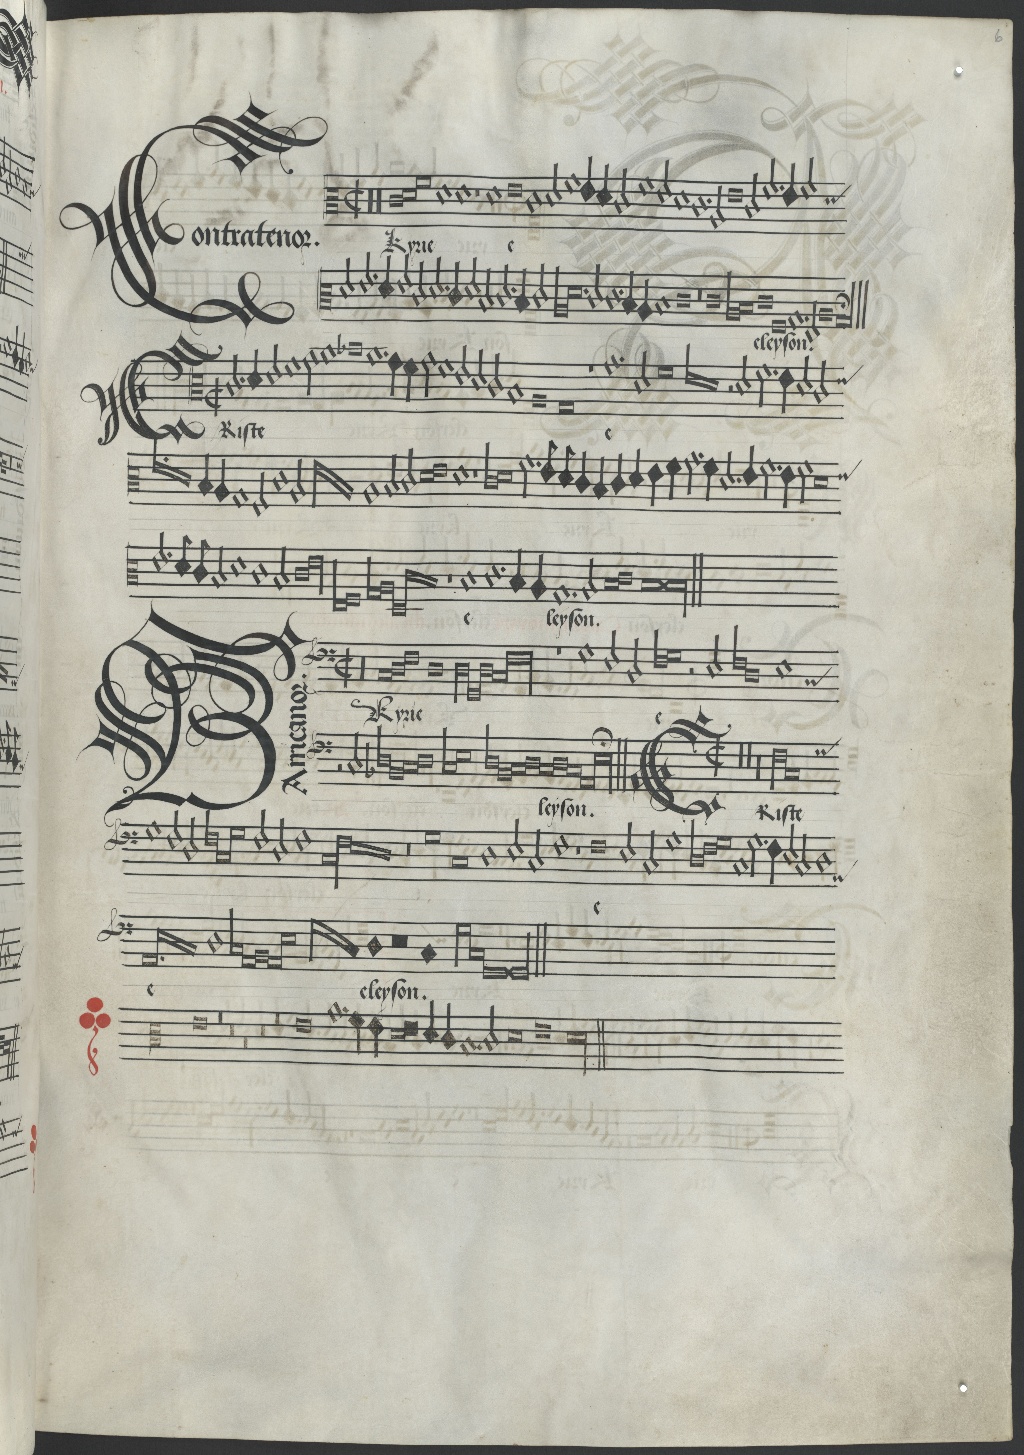 6
Contratenor. Kyrie e
eleyson.
Criste e
e leyson.
Baricanor. Kyrie e
leyson. Criste
e
e eleyson.